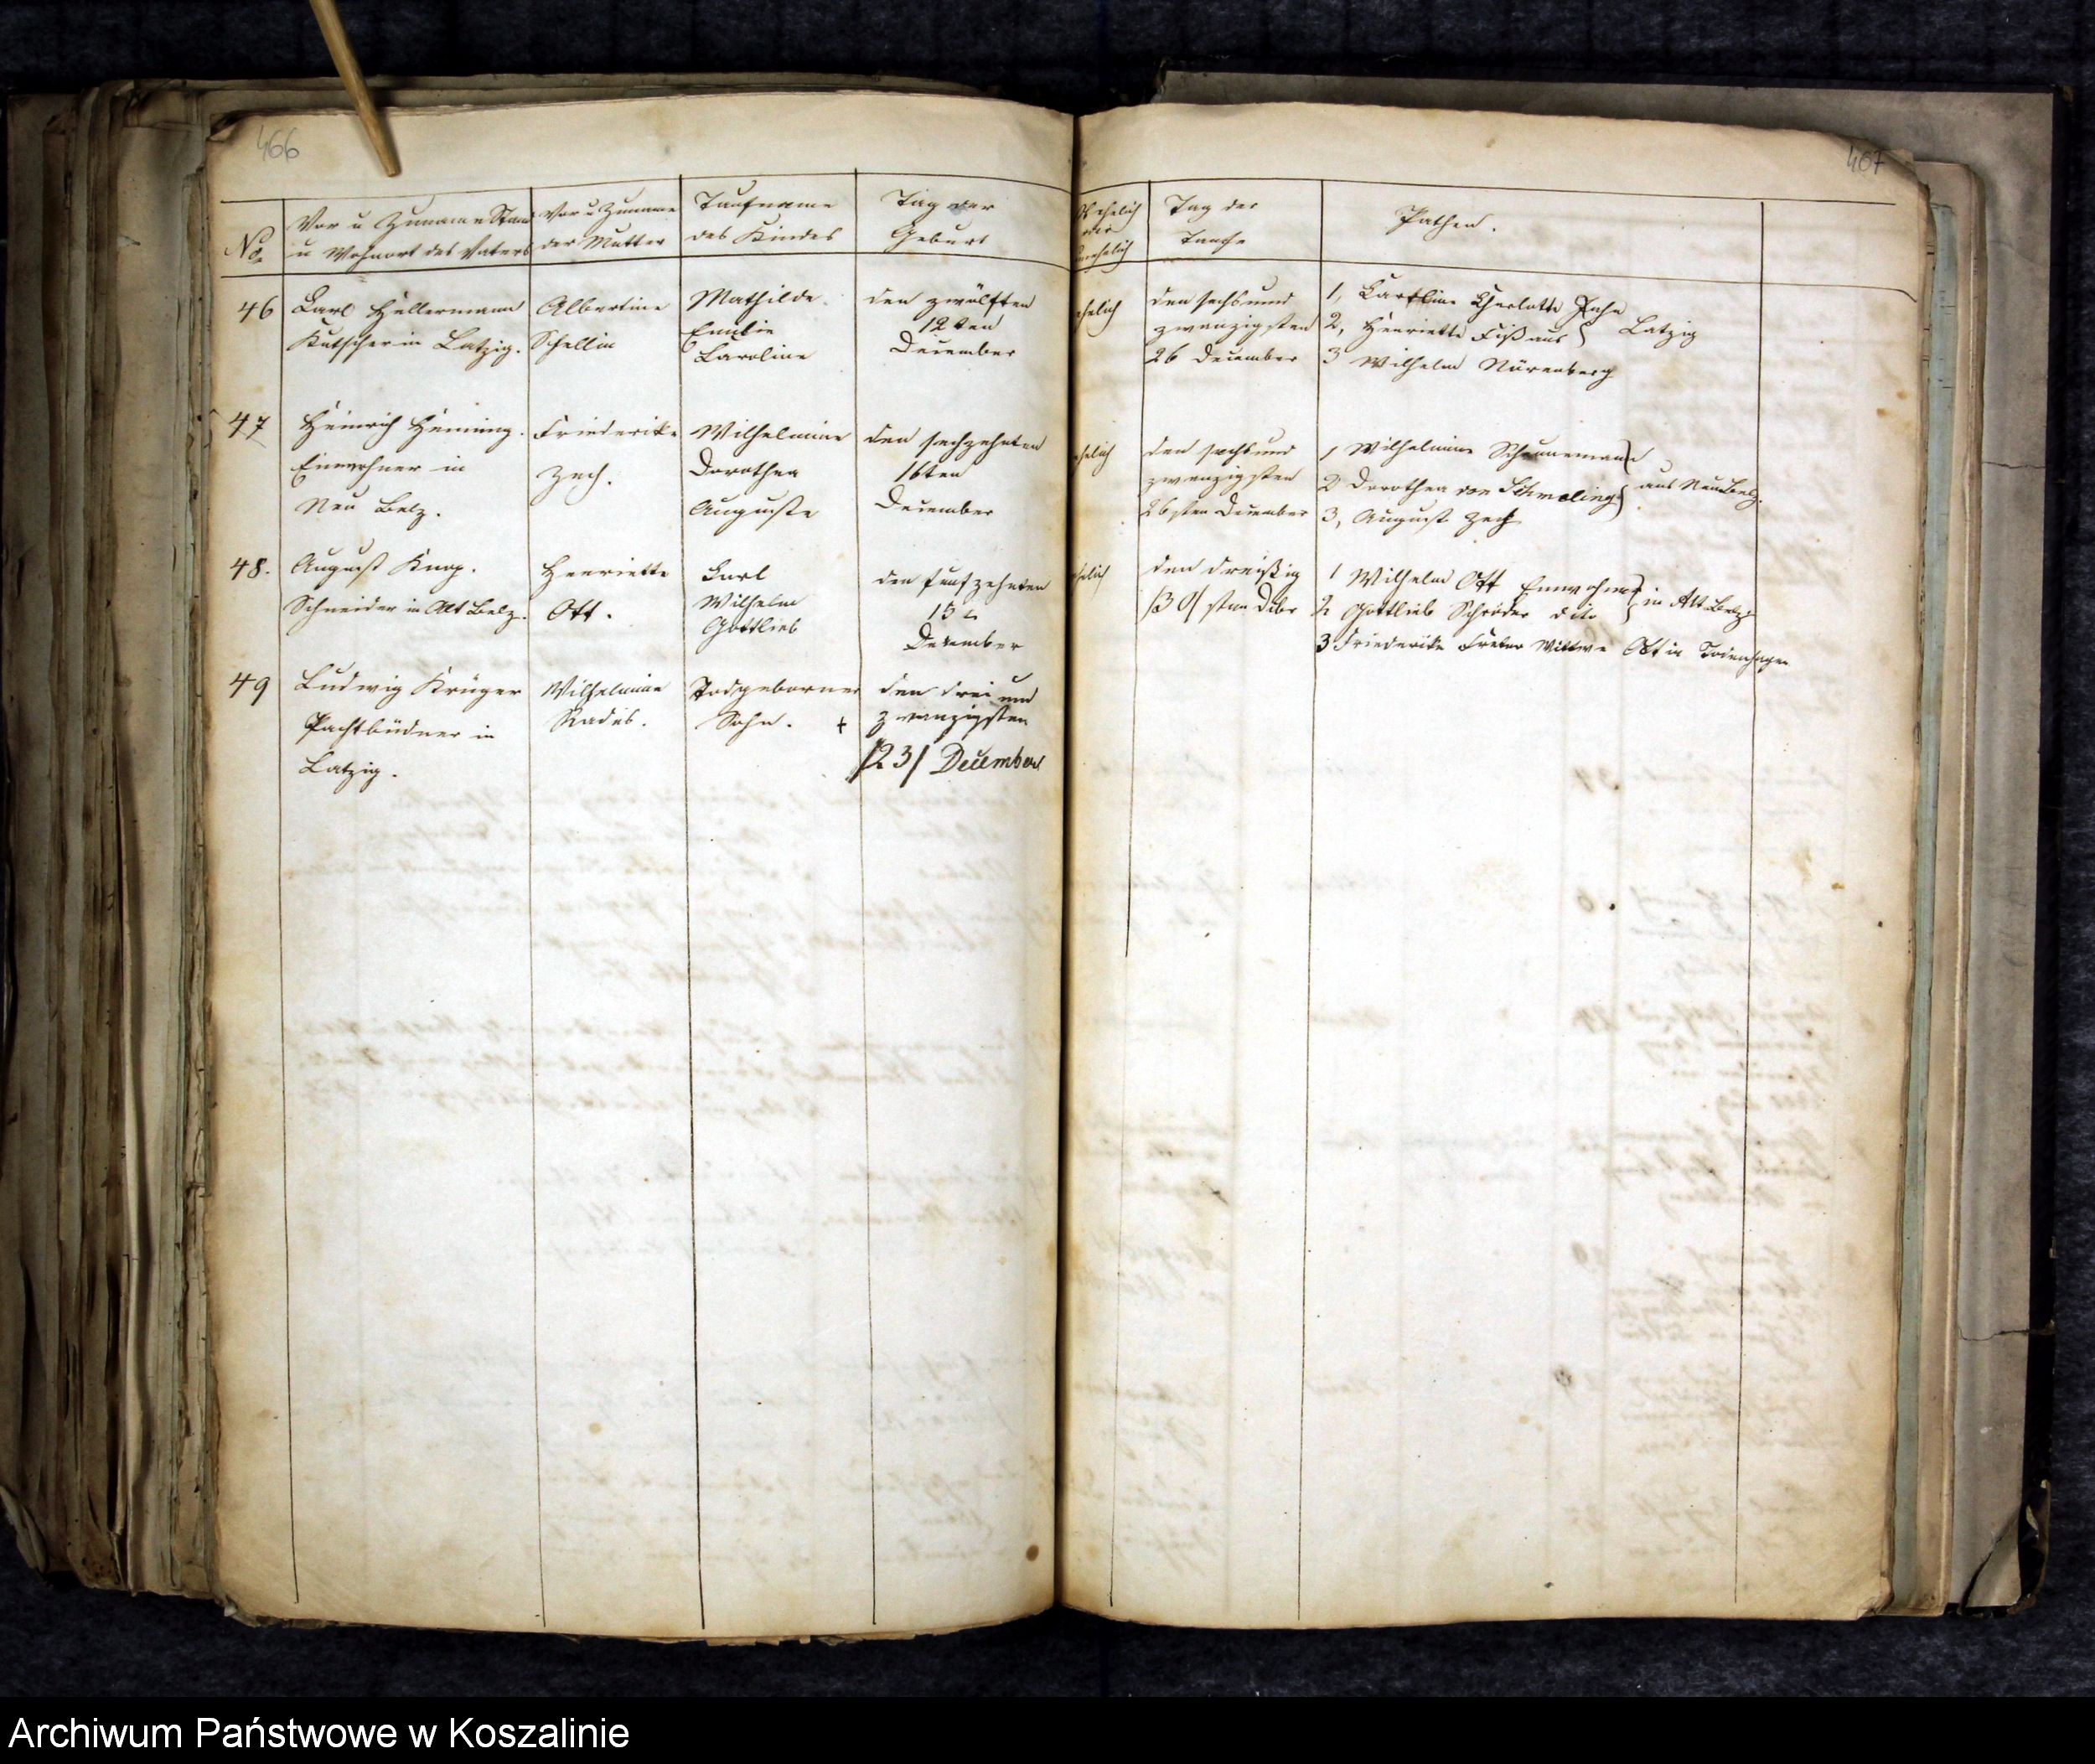 466
No.
Vor u Zuname Stand
u Wohnort des Vaters
Vor u Zuname
der Mutter
Taufname
des Kindes
Tag der
Geburt
46
Carl Hellermann
Kutscher in Latzig.
Albertine
Schellin
Mathilde
Emilie
Caroline
den zwölften
12ten
December
47
Heinrich Henning.
Einwohner in
Neu Belz.
Friederike
Zech.
Wilhelmine
Dorothea
Auguste
den sechzehnten
16ten
December
48.
August Knop.
Schneider in Alt Belz.
Henriette
Ott.
Carl
Wilhelm
Gottlieb
den funfzehnten
15
December
49
Ludwig Krüger
Pachtbüdner in
Latzig.
Wilhelmine
Radis.
Todgeborner
Sohn. +
den drei und
zwanzigsten
/23/ December
467
Ob ehelich
oder
unehelich
Tag der
Taufe
Pathen.
ehelich
den sechs und
zwanzigsten
26 December
1, Caroline Charlotte
2, Henriette aus } Latzig
3 Wilhelm Nürenberg
ehelich
den sechs und
zwanzigsten
26sten December
1 Wilhelmine Scheunemann
2 Dorothea von Schmeling } aus Neu Belz.
3, August Zech
ehelich
den dreißig
/30/ sten Dcbr
1 Wilhelm Ott Einwohner
2 Gottlieb Schröder dito } in Alt Belz.
3 Friederike Wittwe Ott in Todenhagen
Archiwum Państwowe w Koszalinie